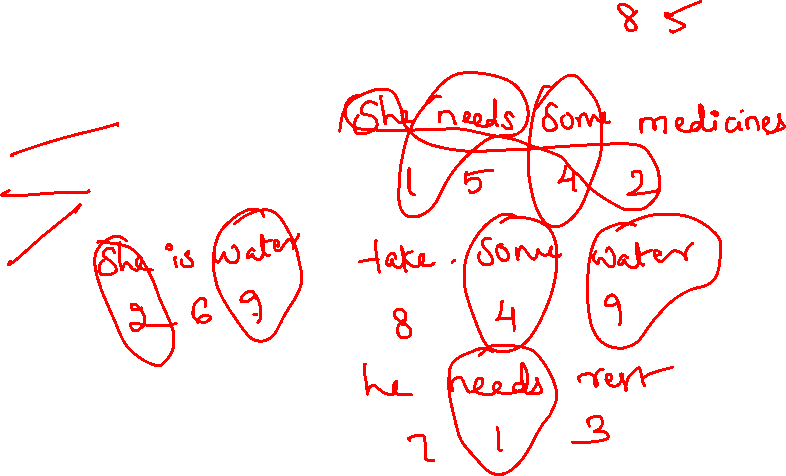 8 5
She needs some medicines
1 5 4 2
She is water
2 6 9
take. some water
8 4 9
he needs rest
7 1 3